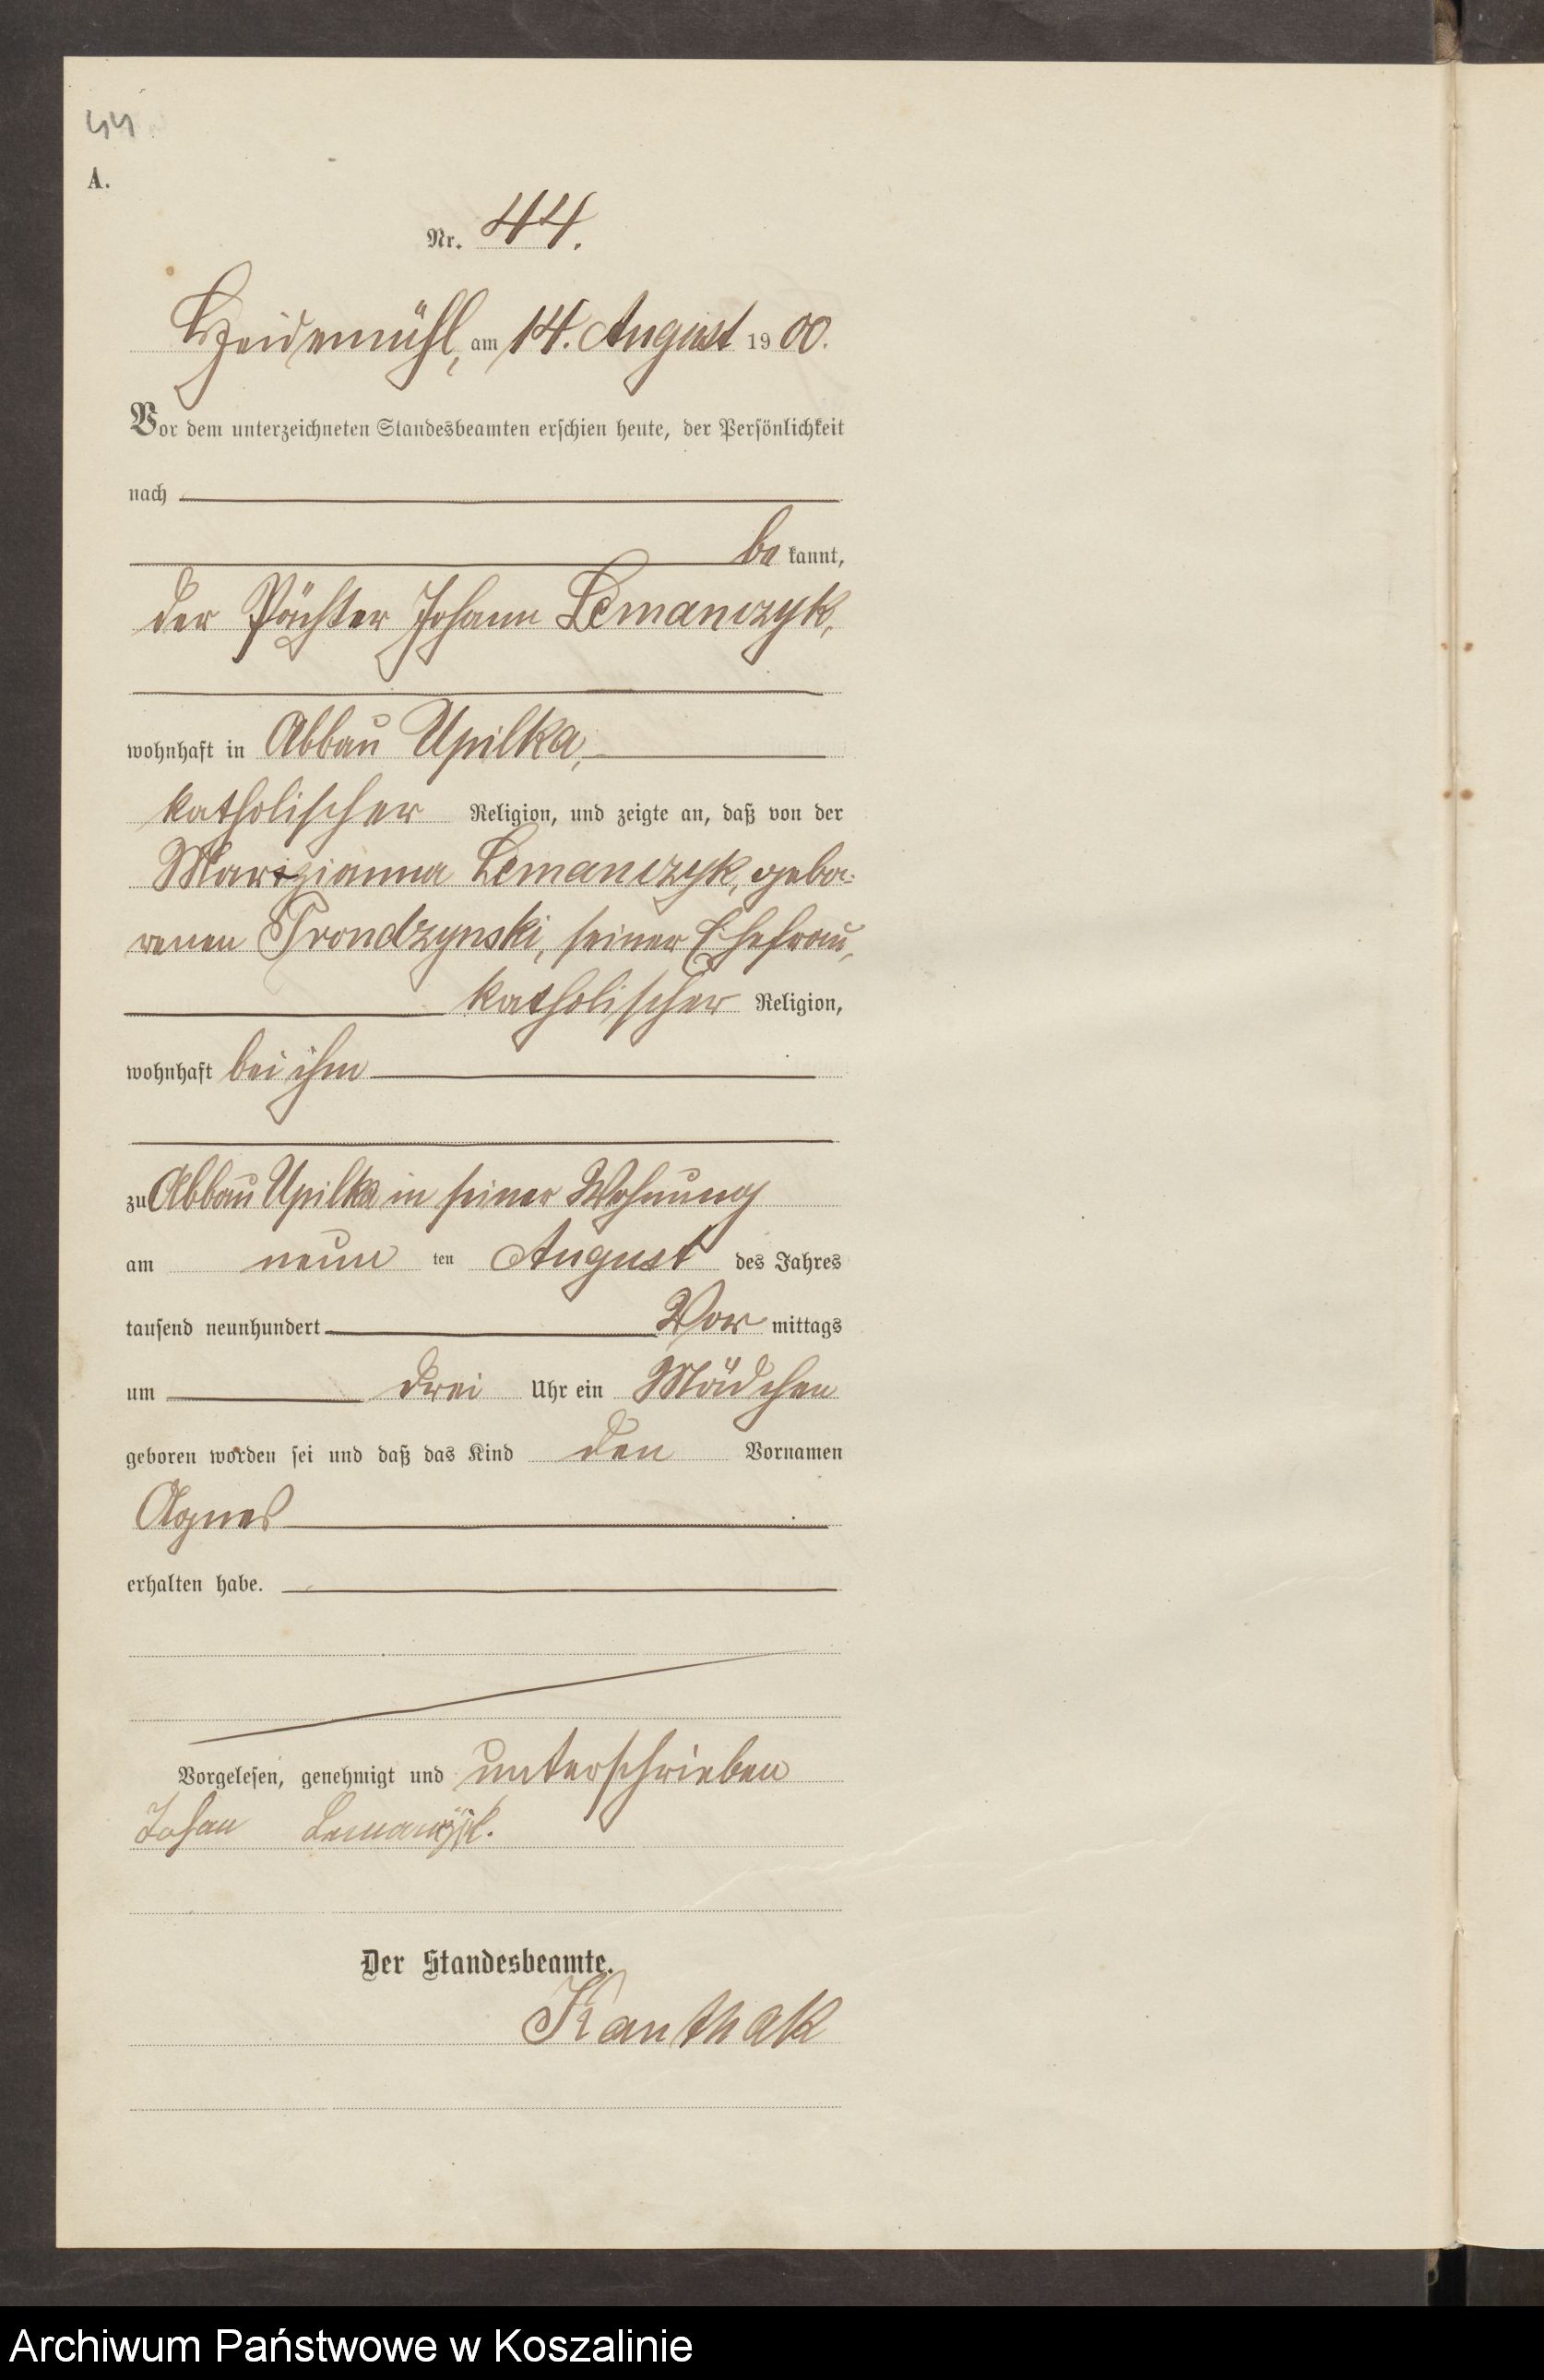 44
A.
Nr. 44.
Heidemühl, am 14. August 1900.
Vor dem unterzeichneten Standesbeamten erschien heute, der Persönlichkeit
nach
be kannt,
der Pächter Johann Lemanczyk,
wohnhaft in Abbau Upilka,
katholischer Religion, und zeigte an, daß von der
Lemanczyk, gebo-
renen Prondzynski, seiner Ehefrau,
katholischer Religion,
wohnhaft bei ihm
zu Abbau Upilka in seiner Wohnung
am neun ten August des Jahres
tausend neunhundert Vor mittags
um drei Uhr ein Mädchen
geboren worden sei und daß das Kind den Vornamen
Agnes
erhalten habe.
Vorgelesen, genehmigt und unterschrieben
Johan
Der Standesbeamte.
Kanthak
Archiwum Państwowe w Koszalinie